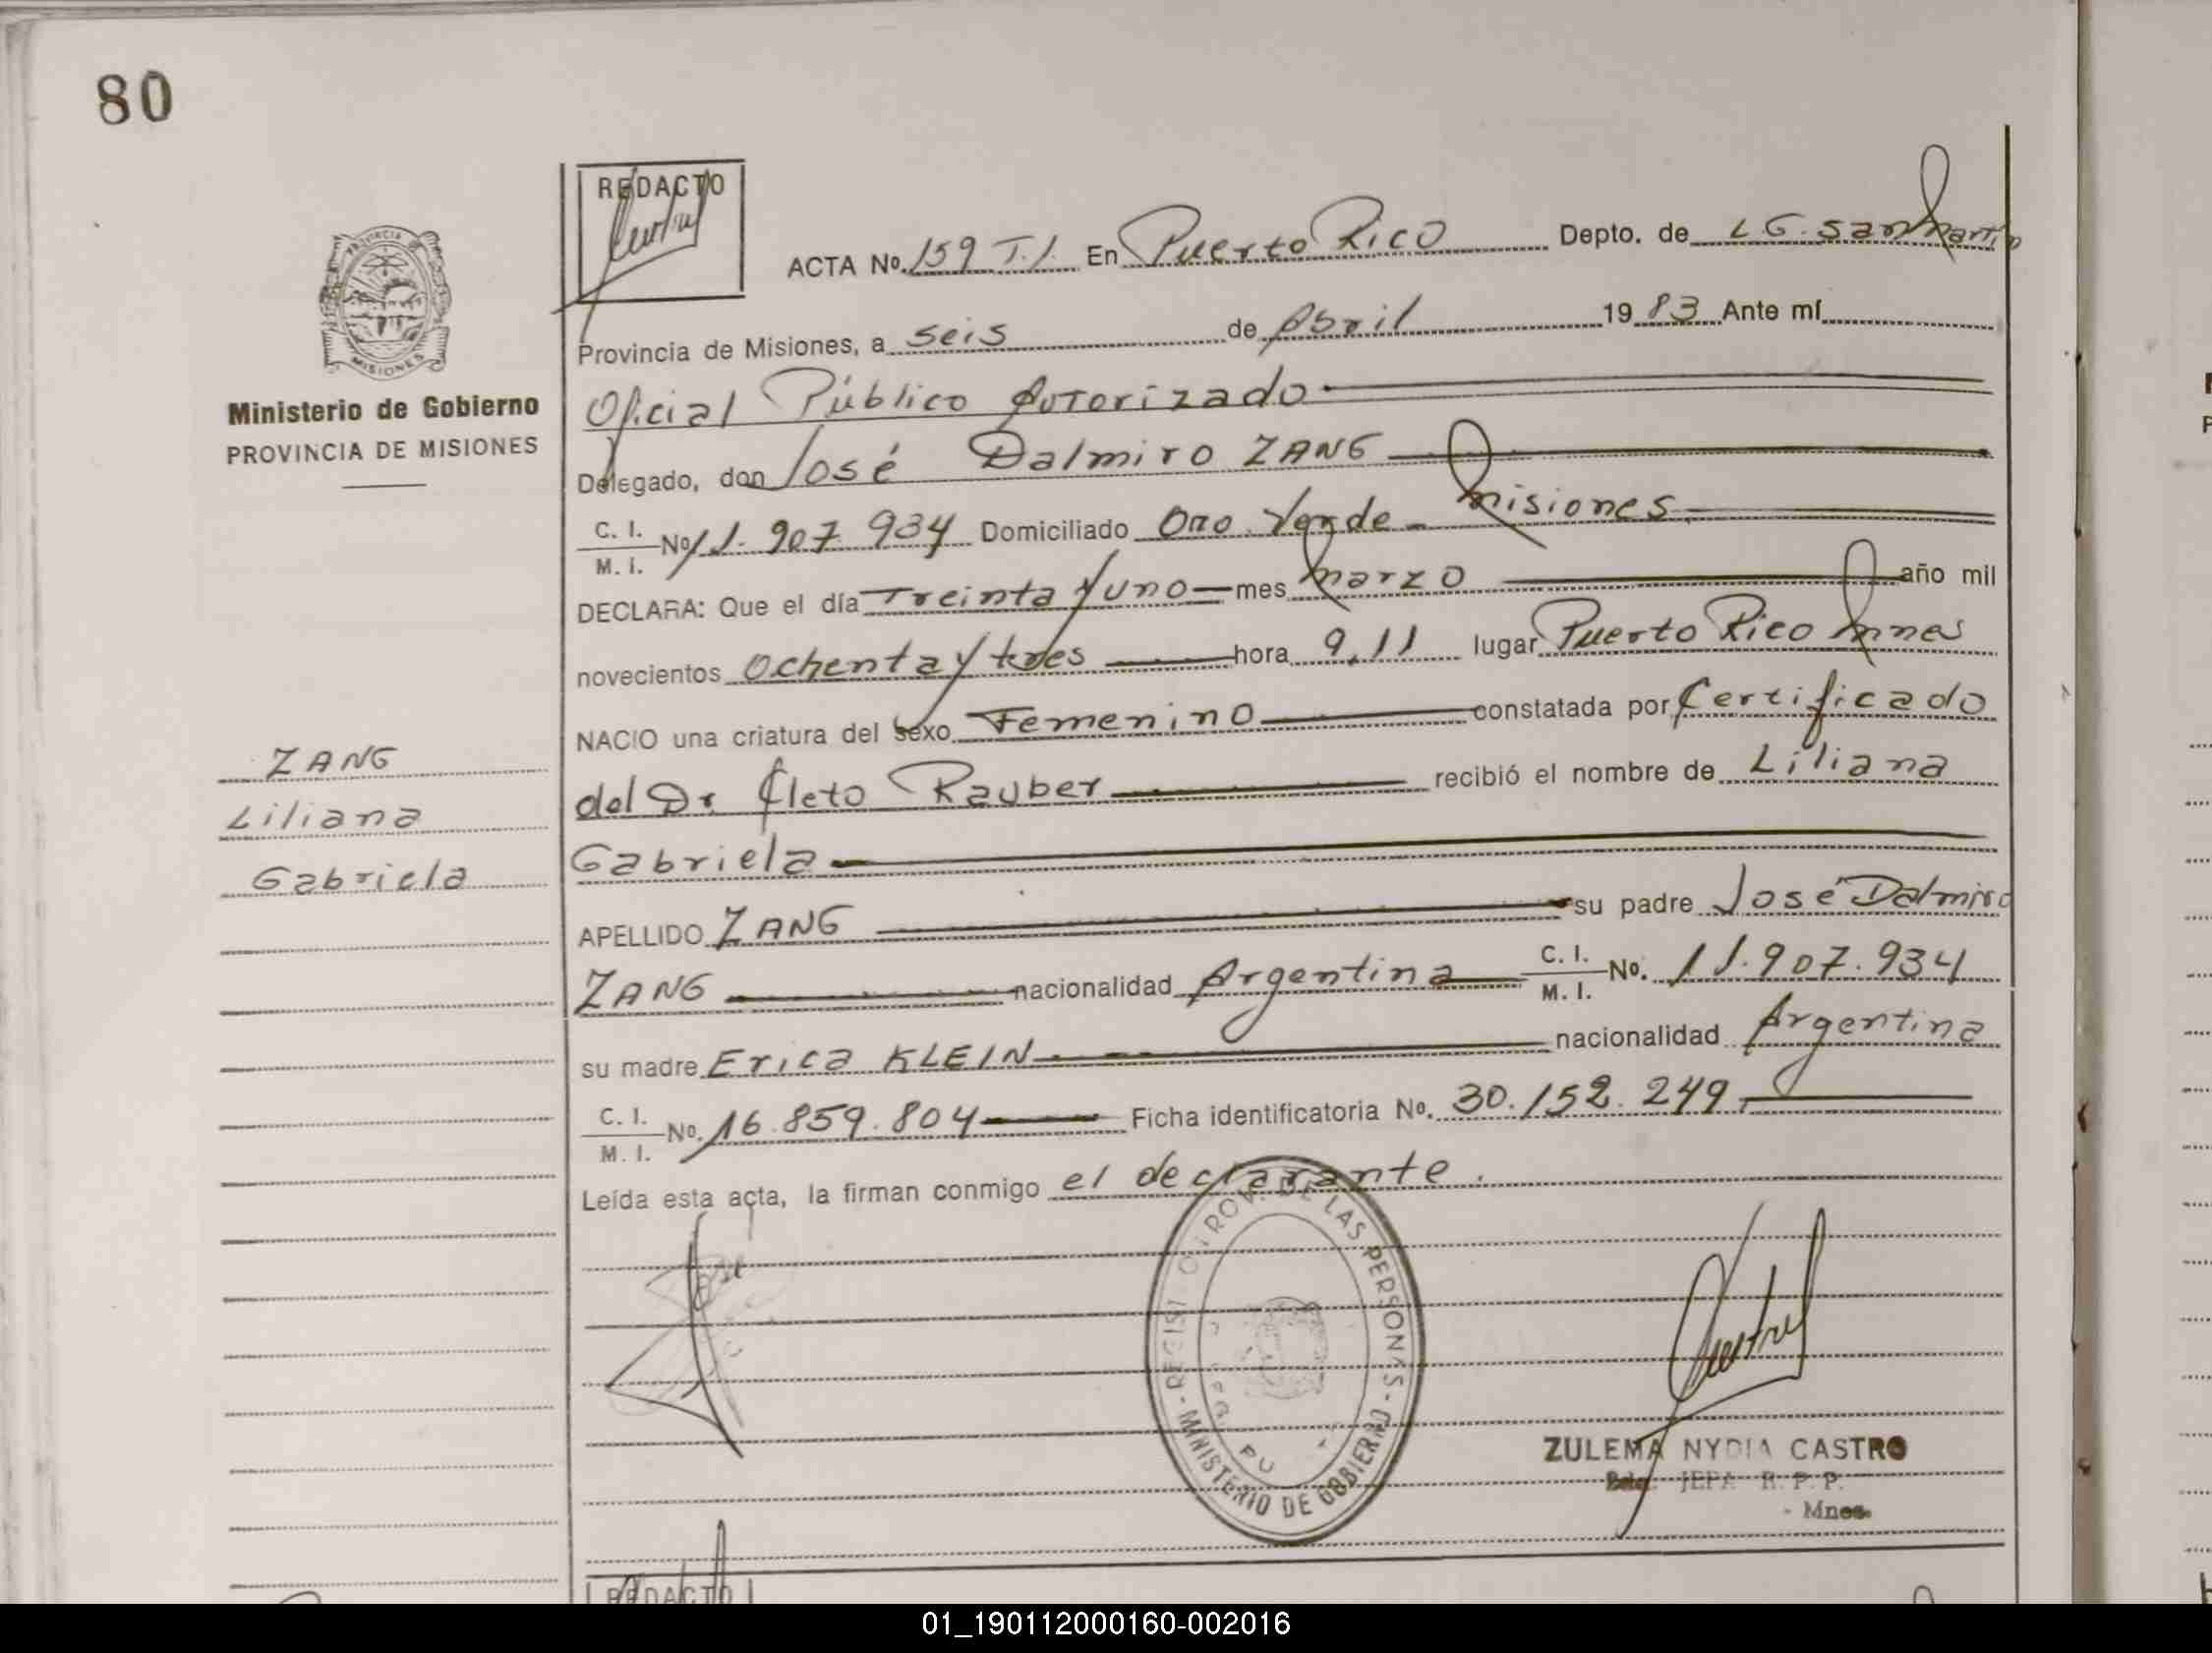 80
REDACTO
ACTA No. 159 T.I. En Puerto Rico Depto. de L G. San Martin
Provincia de Misiones, a seis de Abril 1983 Ante mí
Oficial Público Autorizado
Delegado, don José Dalmiro ZANG
C. I. / M. I. No 11.907.934 Domiciliado Oro Verde - Misiones
DECLARA: Que el día Treinta y uno mes Marzo año mil
novecientos Ochenta y tres hora 9,11 lugar Puerto Rico Mnes
NACIO una criatura del sexo Femenino constatada por Certificado
del Dr. Cleto Rauber recibió el nombre de Liliana
Gabriela
APELLIDO ZANG su padre José Dalmiro
ZANG nacionalidad Argentina C. I. / M. I. No. 11.907.934
su madre Erica KLEIN nacionalidad Argentina
C. I. / M. I. No. 16.859.804 Ficha identificatoria No. 30.152.249
Leída esta acta, la firman conmigo el declarante.
PROVINCIA
MISIONES
Ministerio de Gobierno
PROVINCIA DE MISIONES
ZANG
Liliana
Gabriela
DE LAS PERSONAS - MINISTERIO DE GOBIERNO -
ZULEMA NYDIA CASTRO
JEFA R. P. P.
- Mnes.
REDACTO
01_190112000160-002016